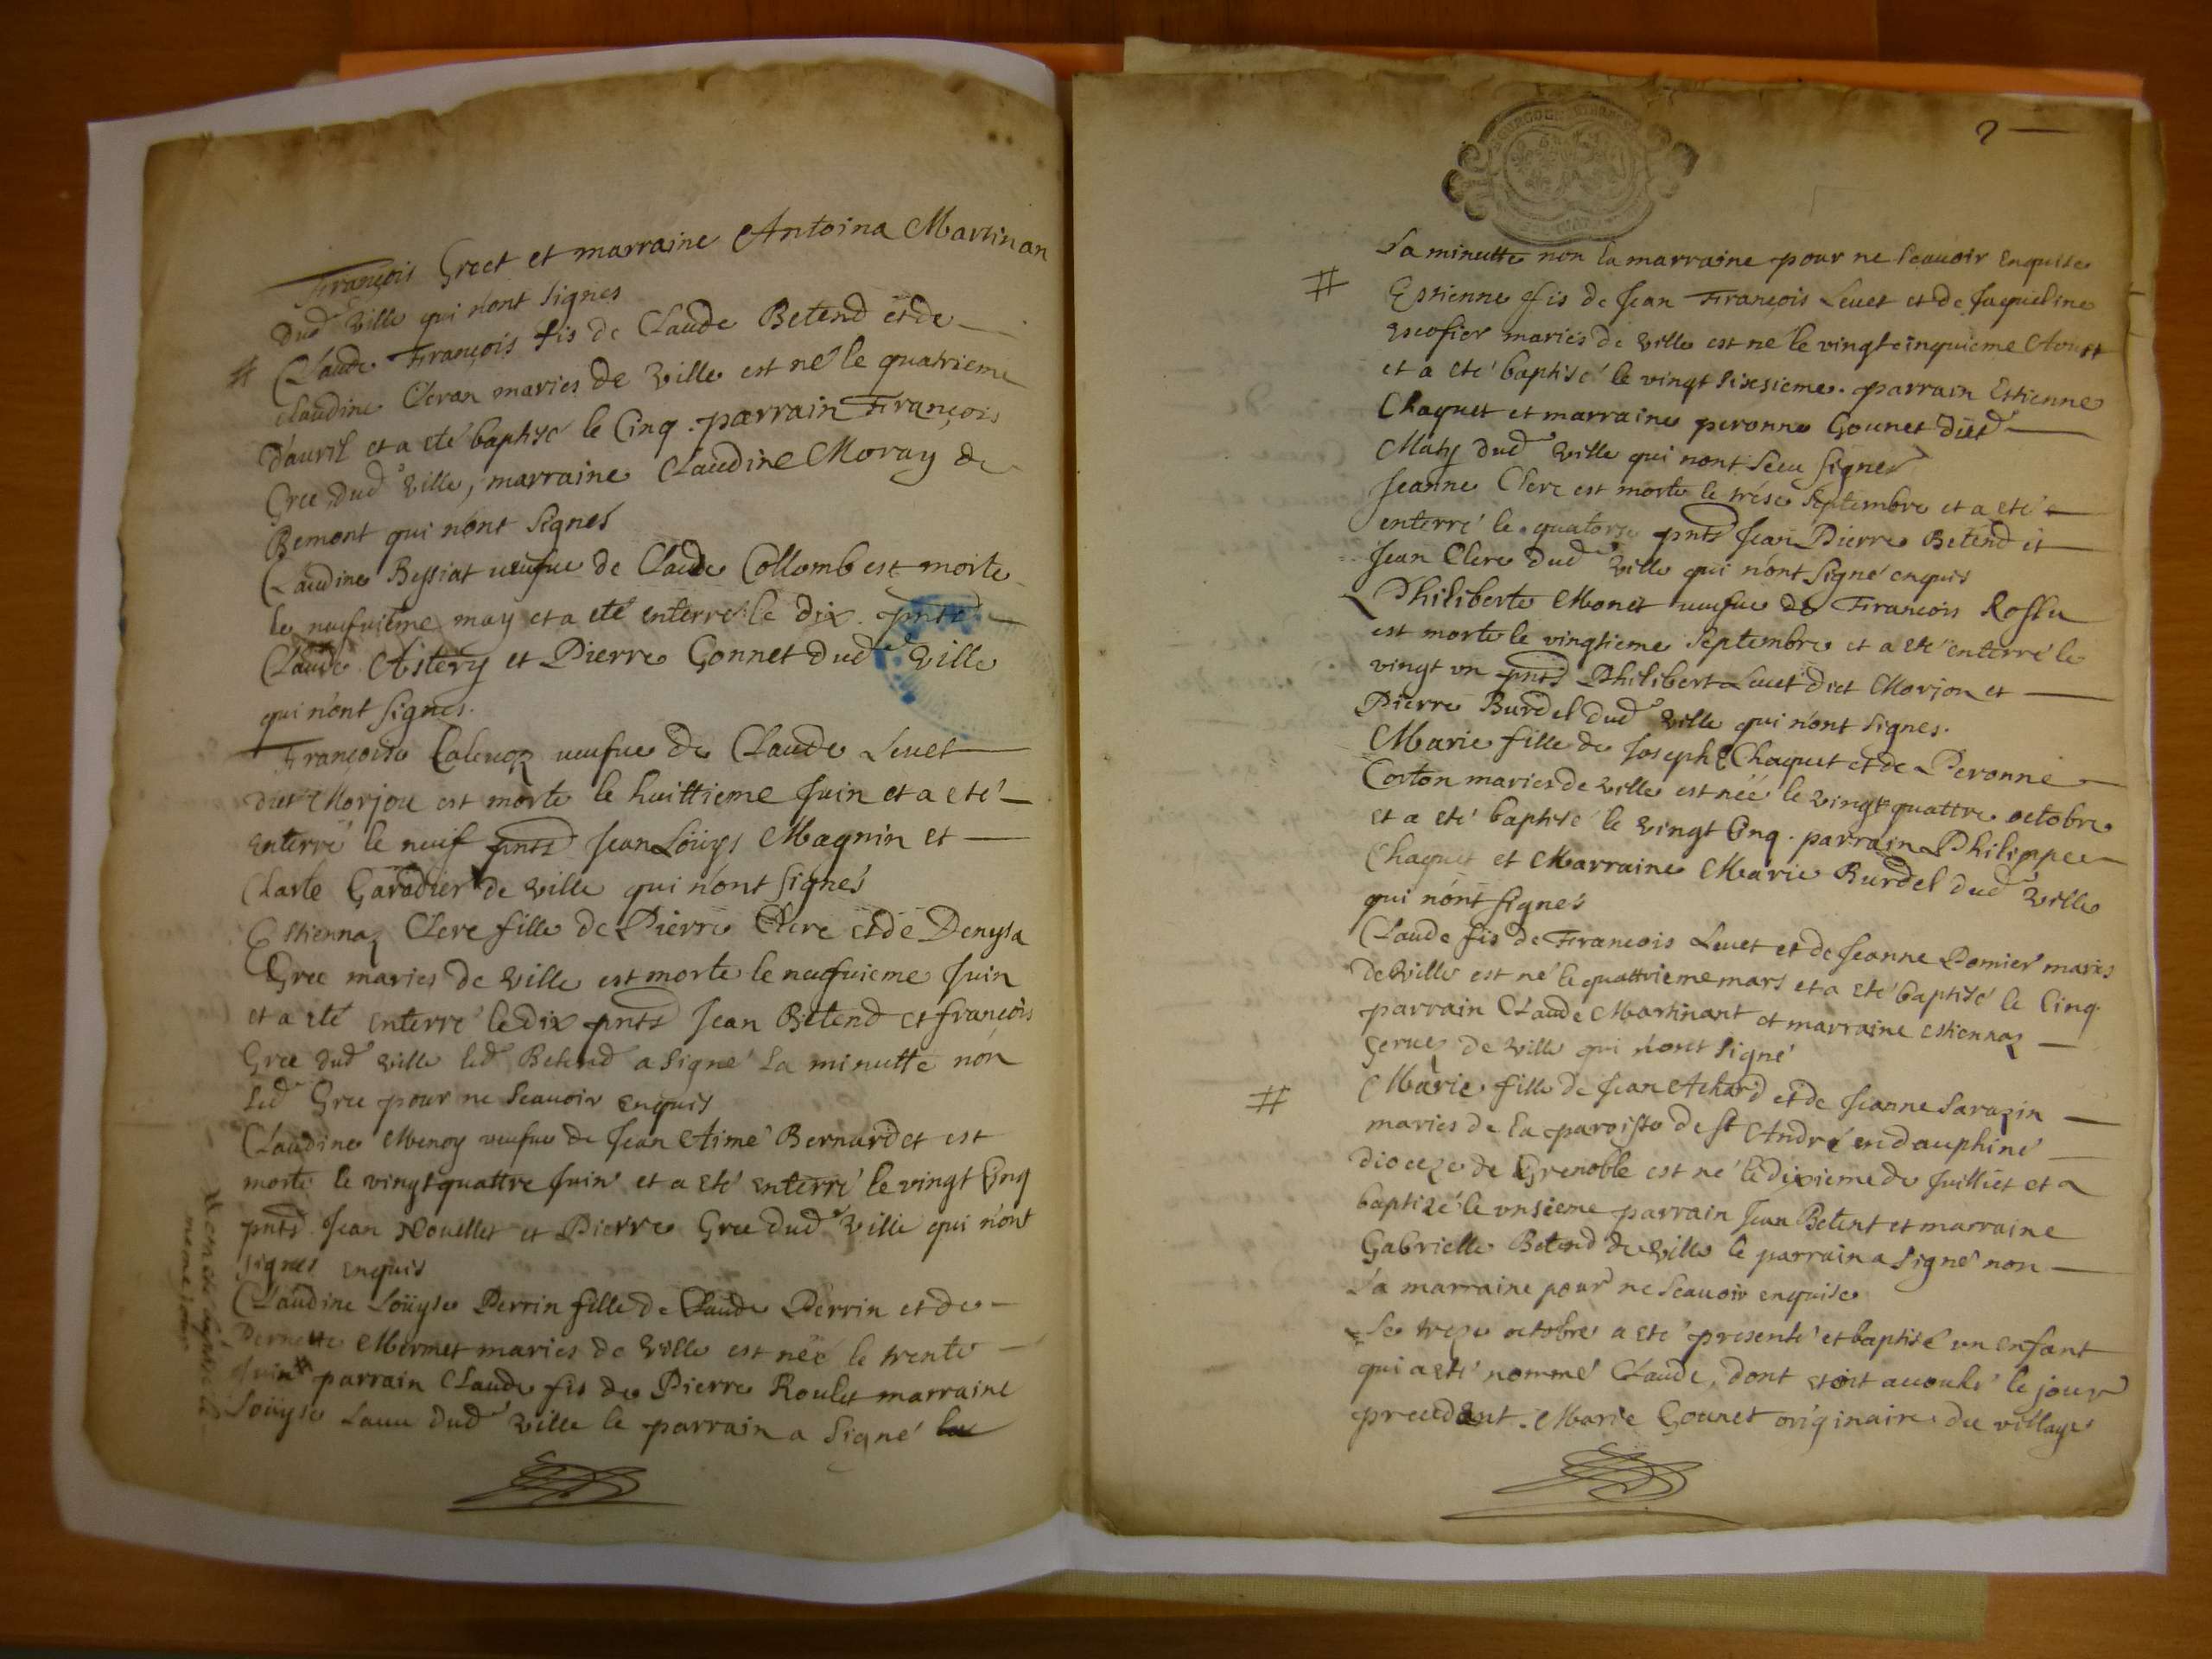 François Greet et marraine Antoina Martinan
dud ville qui n'ont signes
# Claude François fis de Claude Betend et de
claudine Cleran maries de ville est né le quatrieme
d'auril et a eté baptisé le Cinq. parrain François
Gree dud ville, marraine Claudine Moray de
Remont qui n'ont signés
Claudine Bessiat ueufue de Claude Collomb est morte
le neufuieme may et a eté enterré le dix. pnts
Claude Astery et Pierre Gonnet dud ville
qui n'ont signes.
Françoise Caleuoz ueufue de Claude Leuet
diet Morjon est morte le huittieme Juin et a eté
enterré le neuf pnts Jean Loüys Magnin et
Charle Garadier de ville qui n'ont signés
Estiennaz Clere fille de Pierre Clere et de Denysa
Gree maries de ville est morte le neufuieme Juin
et a eté enterré le dix pnts Jean Betend et françois
Gree dud ville led Betend a signé la minutte non
led Gree pour ne scauoir enquis
Claudine Menoy veufue de Jean Aimé Bernardet est
morte le vingt quattre Juin et a eté enterré le vingt Cinq
pnts Jean Nouellet et Pierre Gree dud ville qui n'ont
signes enquis
Claudine Loüyse Perrin fille de Claude Perrin et de
Pernette Mermet maries de ville est née le trente
Juin # parrain Claude fis de Pierre Roulet marraine
Loüyse Lauu dud ville le parrain a signé
# en eté baptisé le
meme jour
2
La minutte non la marraine pour ne scauoir enquise
# Estienne fis de Jean François Leuet et de Jaqueline
escofier mariés de ville est né le vingt cinquieme Aoust
et a eté baptisé le vingt sixsieme. parrain Estienne
Chaquet et marraine peronne Gounet diet
Maty dud ville qui nont sceu signer
Jeanne Clere est morte le trése septembre et a eté
enterré le quatorse pnts Jean Pierre Betend et
Jean Clere dud ville qui n'ont signé enquis
Philiberte Monet ueufue de François Rossu
est morte le vingtieme septembre et a eté enterré le
vingt vn pnts Philibert Leuet diet Morjon et
Pierre Burdel dud ville qui n'ont signes.
Marie fille de Joseph Chaquet et de Peronne
Corton maries de ville est néé le vingt quattre octobre
et a eté baptisé le vingt Cinq. parrain Philippe
Chaquet et Marraine Marie Burdel dud ville
qui n'ont signés
Claude fis de François Leuet et de Jeanne Pomier maries
de ville est né le quattrieme mars et a eté baptisé le Cinq.
parrain Claude Martinant et marraine estiennaz
Geruez de ville qui n'ont signé
# Marie fille de Jean Achard et de Jeanne Sarazin
maries de la paroisse de st André en dauphiné
dioceze de Grenoble est né le dixieme de Juilliet et a
baptizé le vnsieme parrain Jean Betent et marraine
Gabrielle Betend de ville le parrain a signé non
la marraine pour ne scauoir enquise
Le treze octobre a eté presenté et baptisé un enfant
qui a eté nommé Claude, dont etoit accouché le jour
precedent. Marie Gounet originaire du village